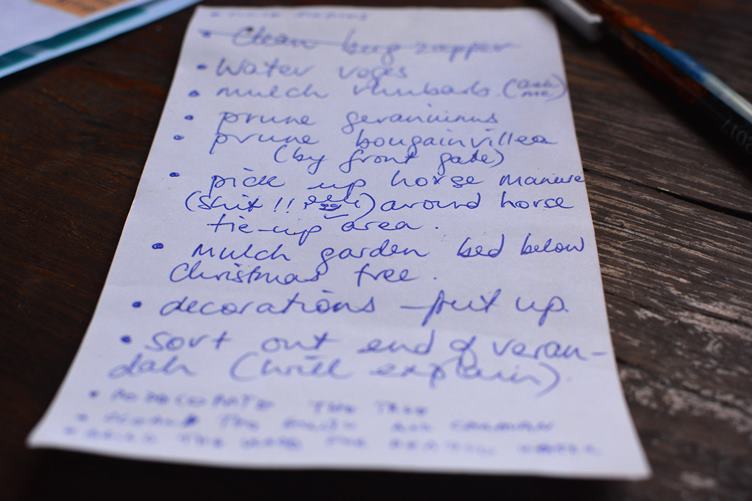 • Clean bug zapper
• Water roses
• mulch rhubarb (ask me)
• prune geraniums
• prune bougainvillea
(by front gate)
• pick up horse manure
(shit !! ) around horse
tie-up area.
• mulch garden bed below
Christmas tree.
• decorations – put up
• sort out end of veran-
dah (will explain).
• THE TREE
• THE
• THE FOR